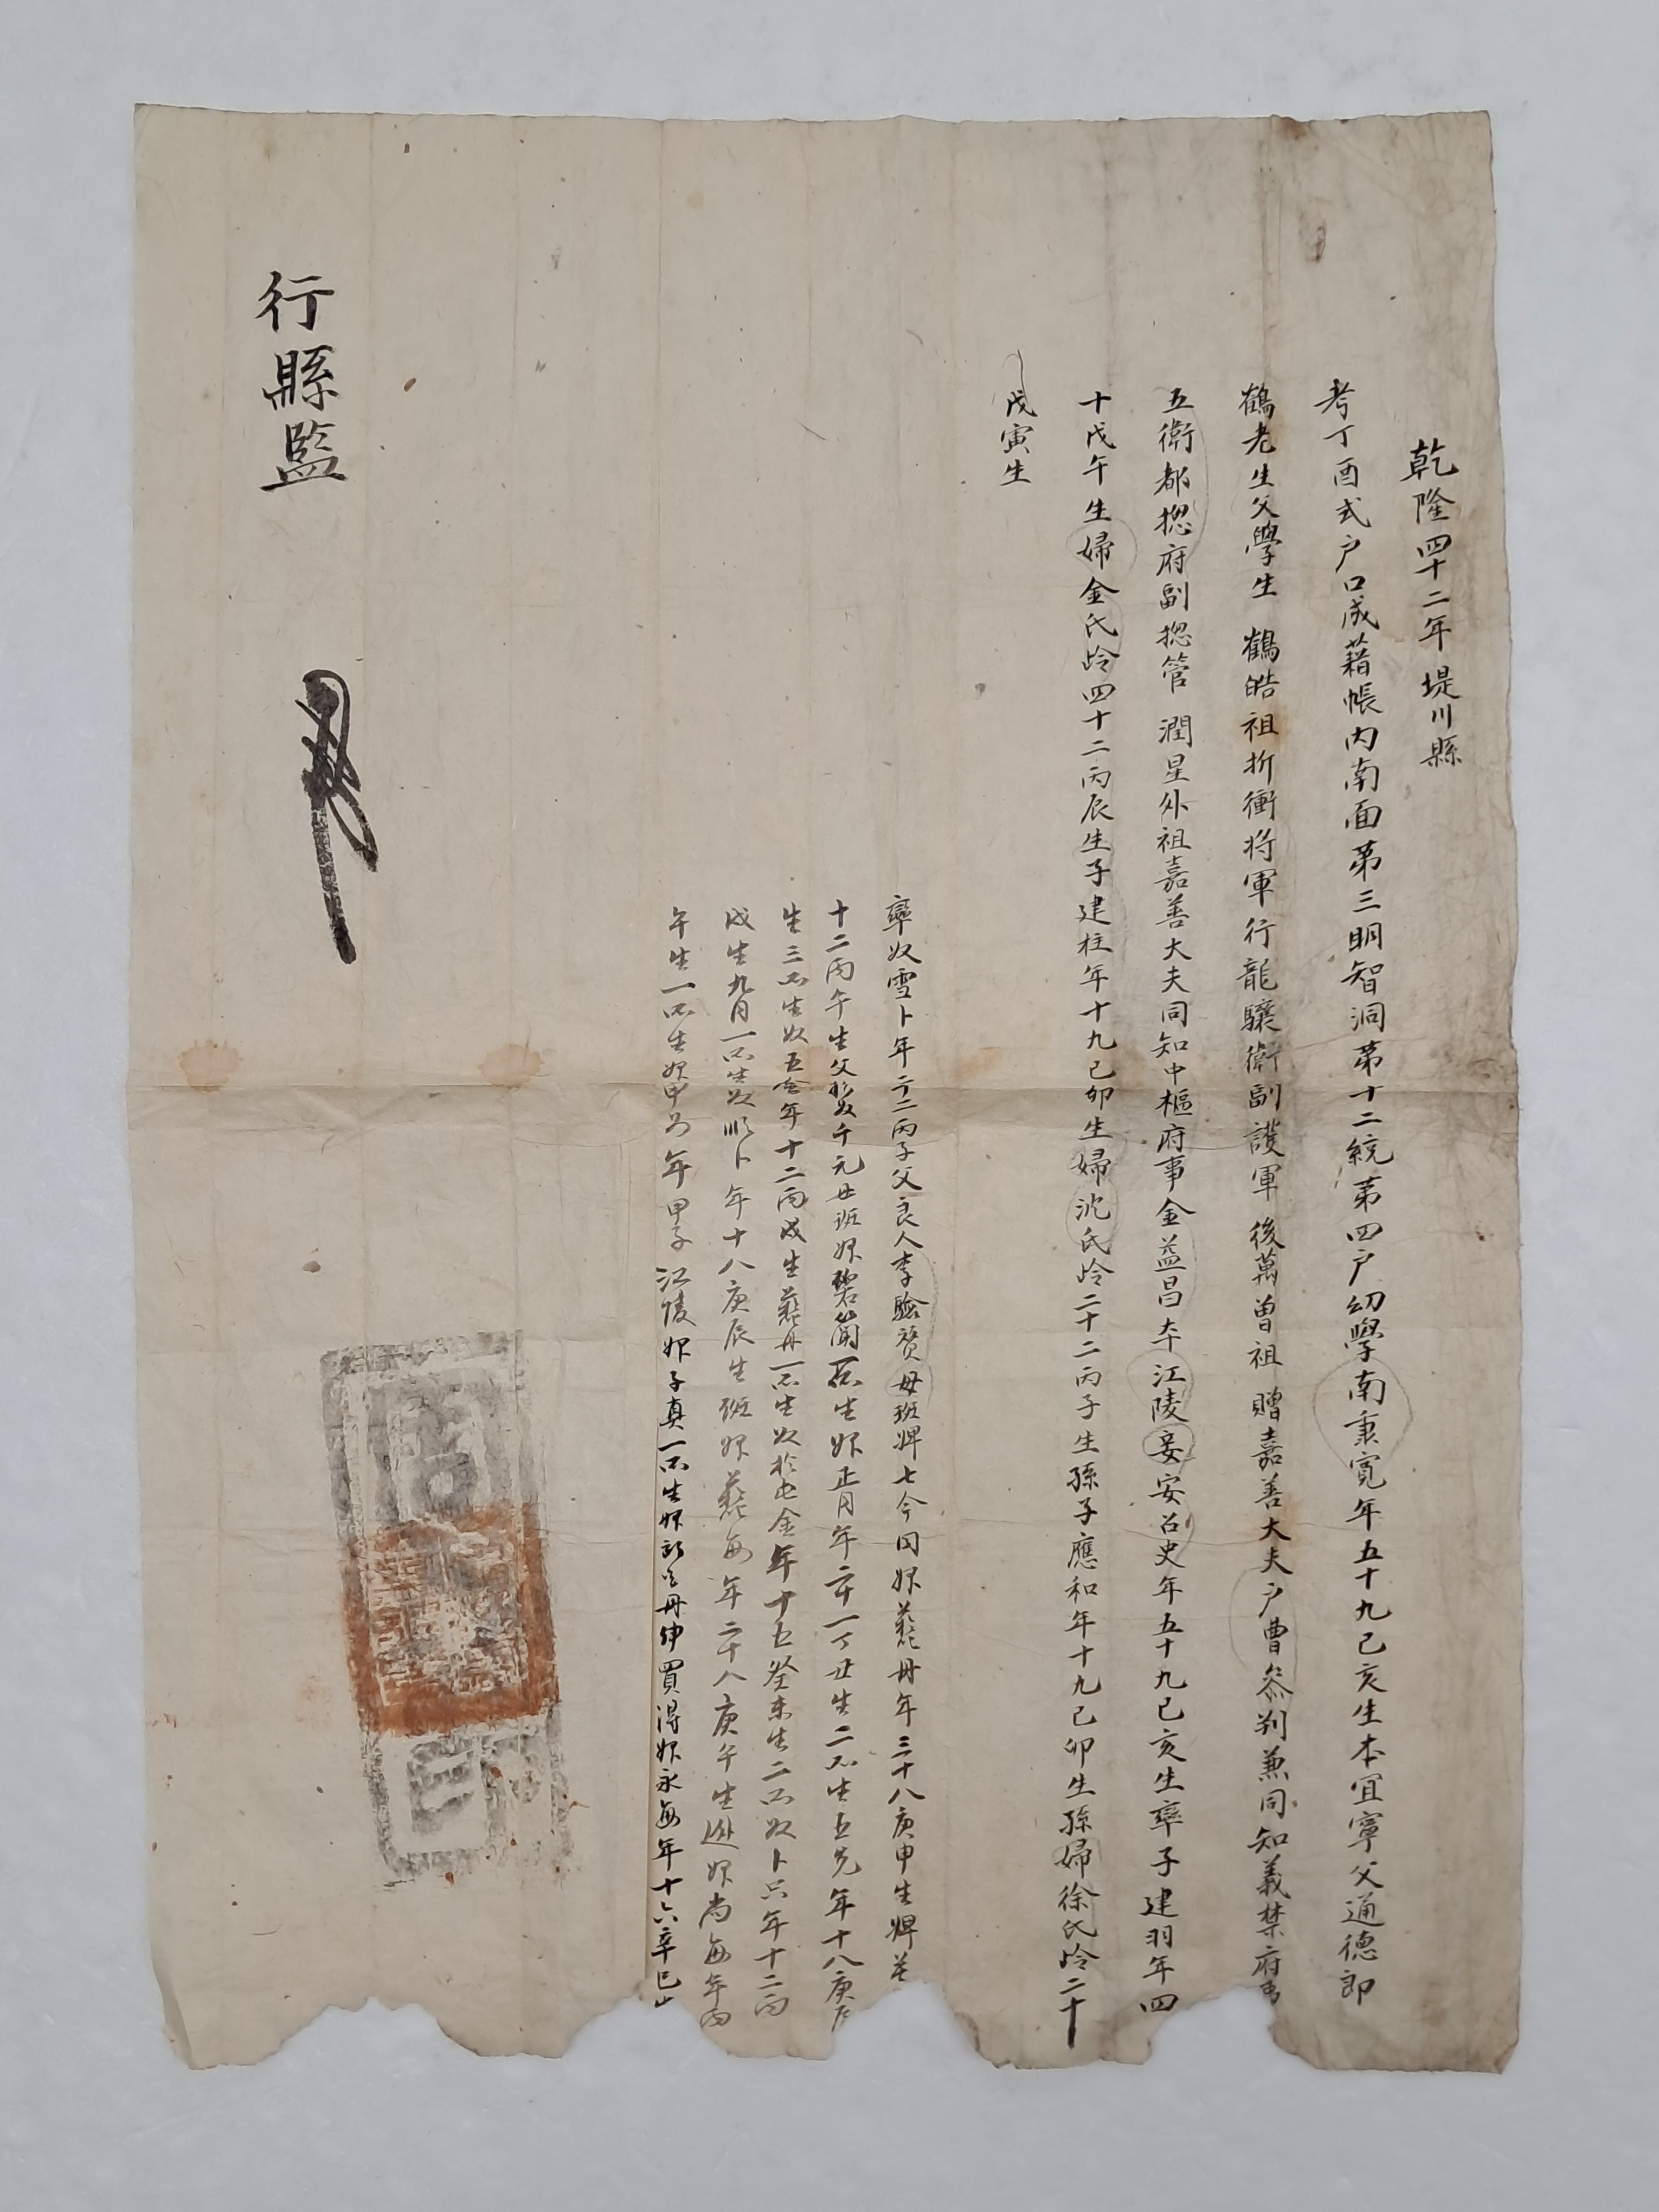 乾隆四十二年 堤川縣
考丁酉式户口成藉帳內南面第三明智洞第十二統第四户幼學南秉寬年五十九己亥生本宜寧父通德郎
鶴老生父學生 鶴皓祖折衝将軍行龍驤衛副護軍 後萬曽祖 贈嘉善大夫户曹叅判兼同知義禁府事
五衛都摠府副摠管 潤星外祖嘉善大夫同知中樞府事金益昌本江陵妾安召史年五十九己亥生率子建羽年四
十戊午生婦金氏岭四十二丙辰生子建柱年十九己卯生婦沈氏岭二十二丙子生孫子應和年十九己卯生孫婦徐氏岭二十
戊寅生
率奴雪卜年二十二丙子父良人李 母班婢七今同婢 丹年三十八庚申生婢
十二丙午生父 奴千元母班婢 生婢正月年二十一丁丑生二所生五先年十八庚辰
生三所生奴五金年十二丙戌生 丹一所生奴 金年十五癸未生二所奴卜只年十二丙
戌生九月一所生奴順卜年十八庚辰生班婢 每年二十八庚午生 婢尚每年丙
午生一所生婢甲 年甲子 江陵婢子真一所生婢 丹 買得婢永每年十六辛巳
行縣監